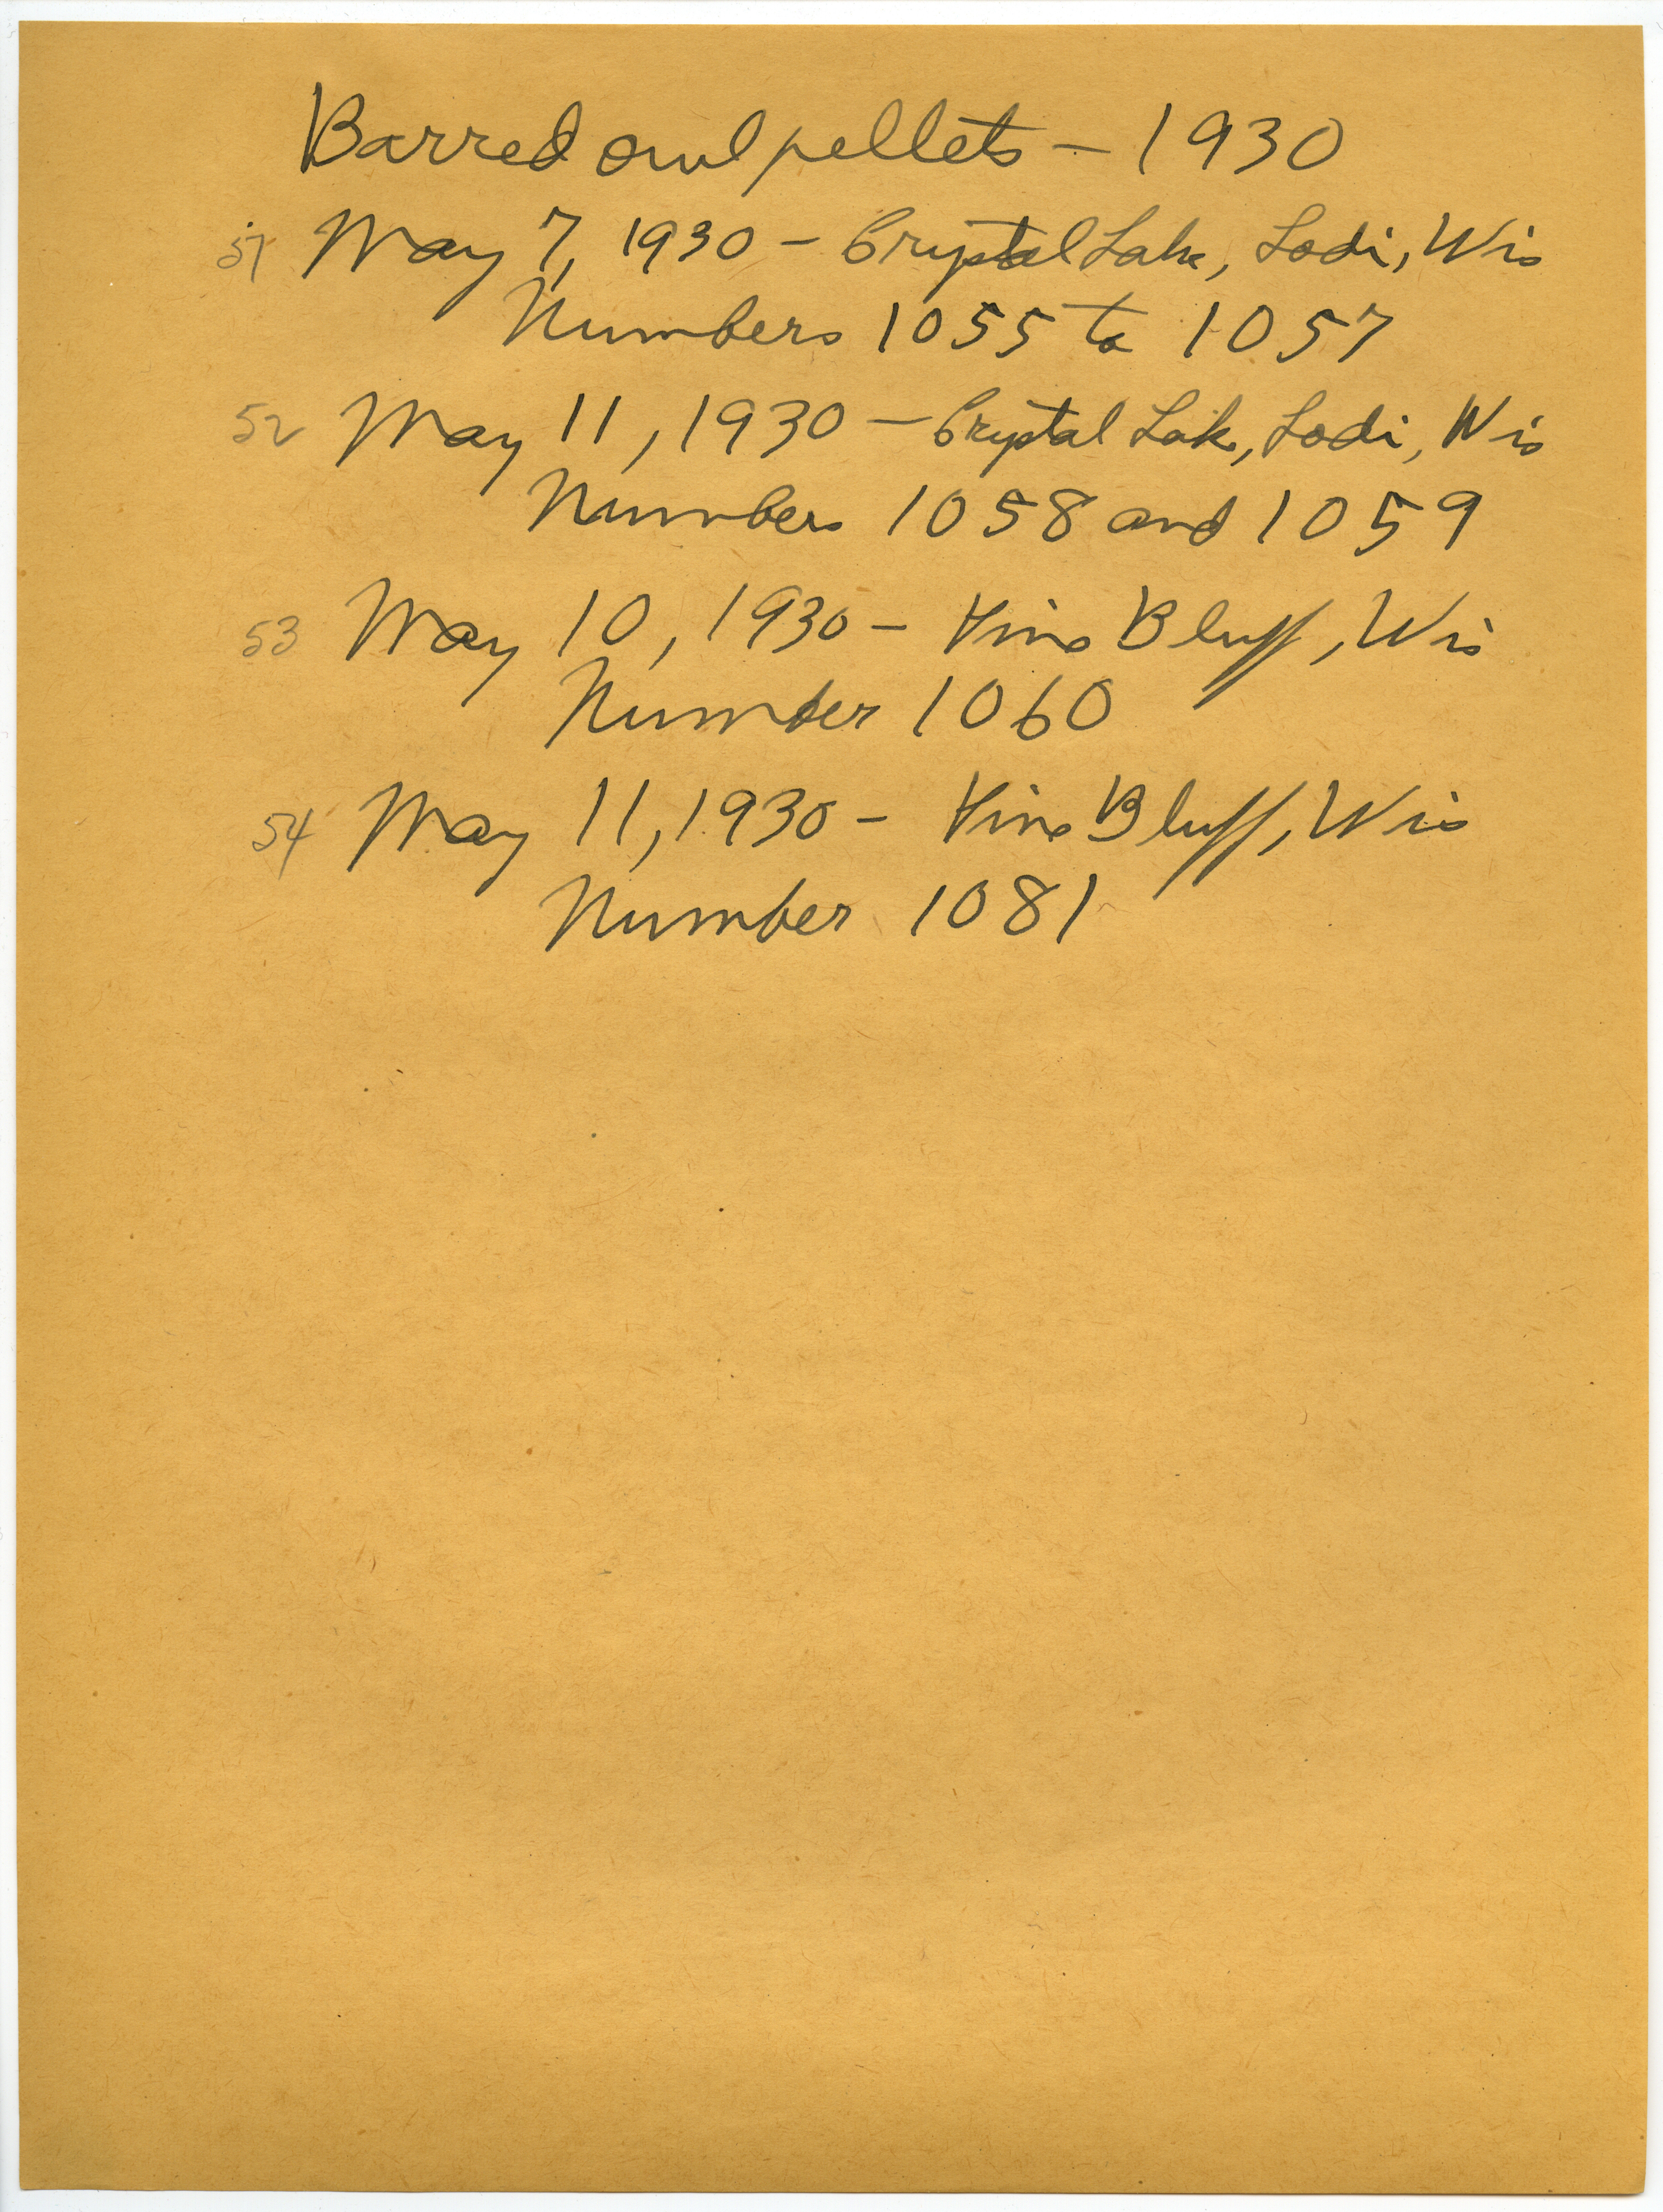 Barred owl pellets – 1930
51 May 7, 1930 – Crystal Lake, Lodi, Wis
Numbers 1055 to 1057
52 May 11, 1930 – Crystal Lake, Lodi, Wis
Numbers 1058 and 1059
53 May 10, 1930 – Pine Bluff, Wis
Number 1060
54 May 11, 1930 – Pine Bluff, Wis
Number 1081